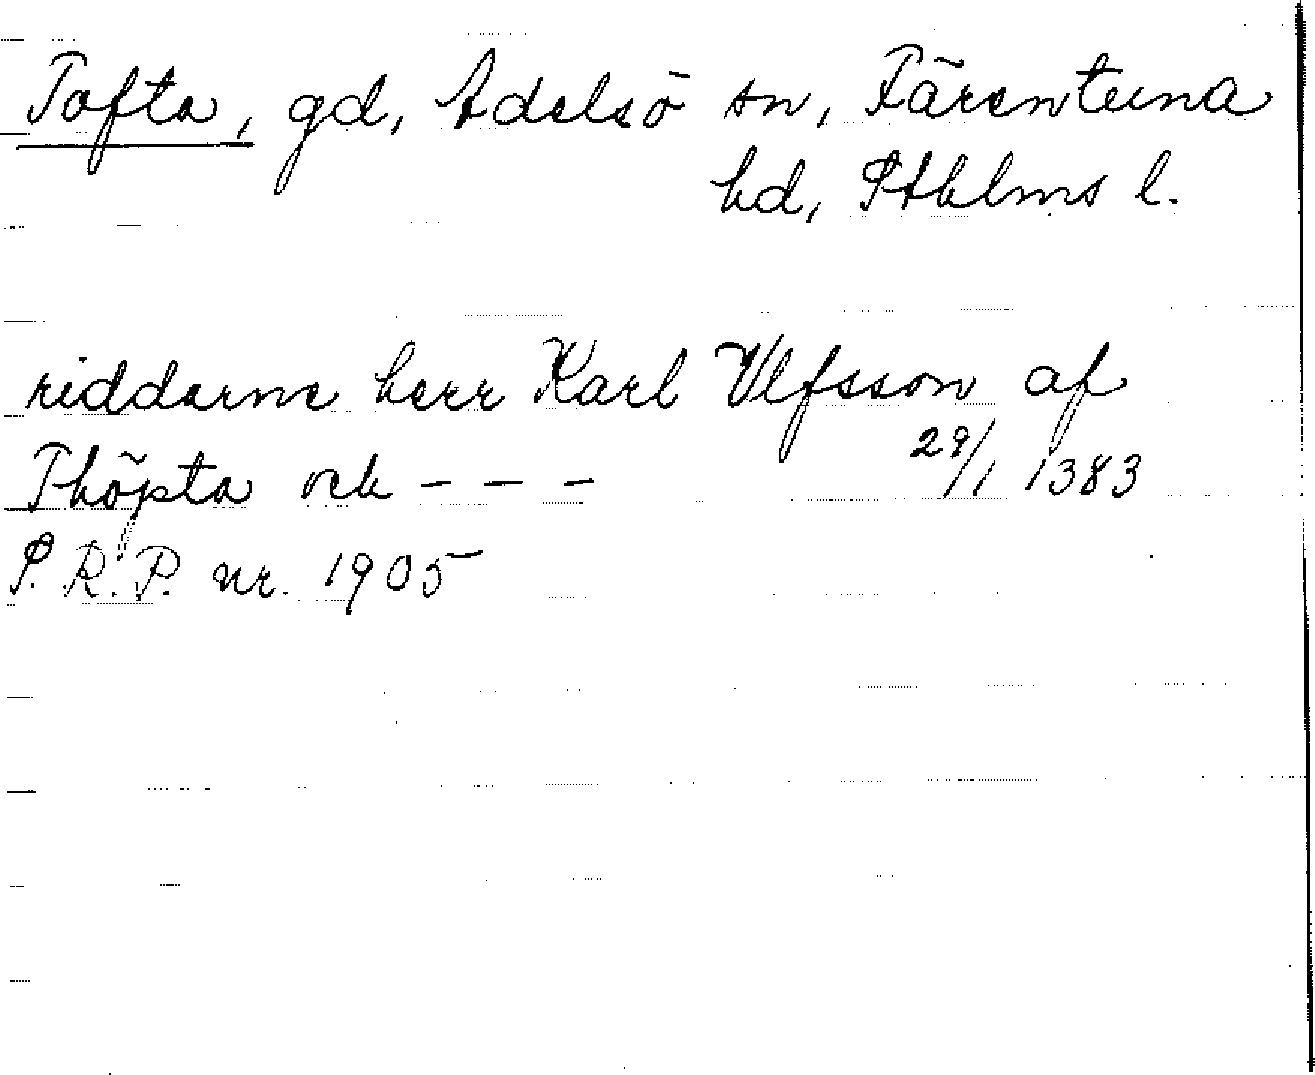 Tofta, gd, Adelsö sn, Färentuna
hd, Sthlms l.
riddarne herr Karl Ulfsson af
Thöpta och - - - 29/1 1383
S.R.P. nr. 1905